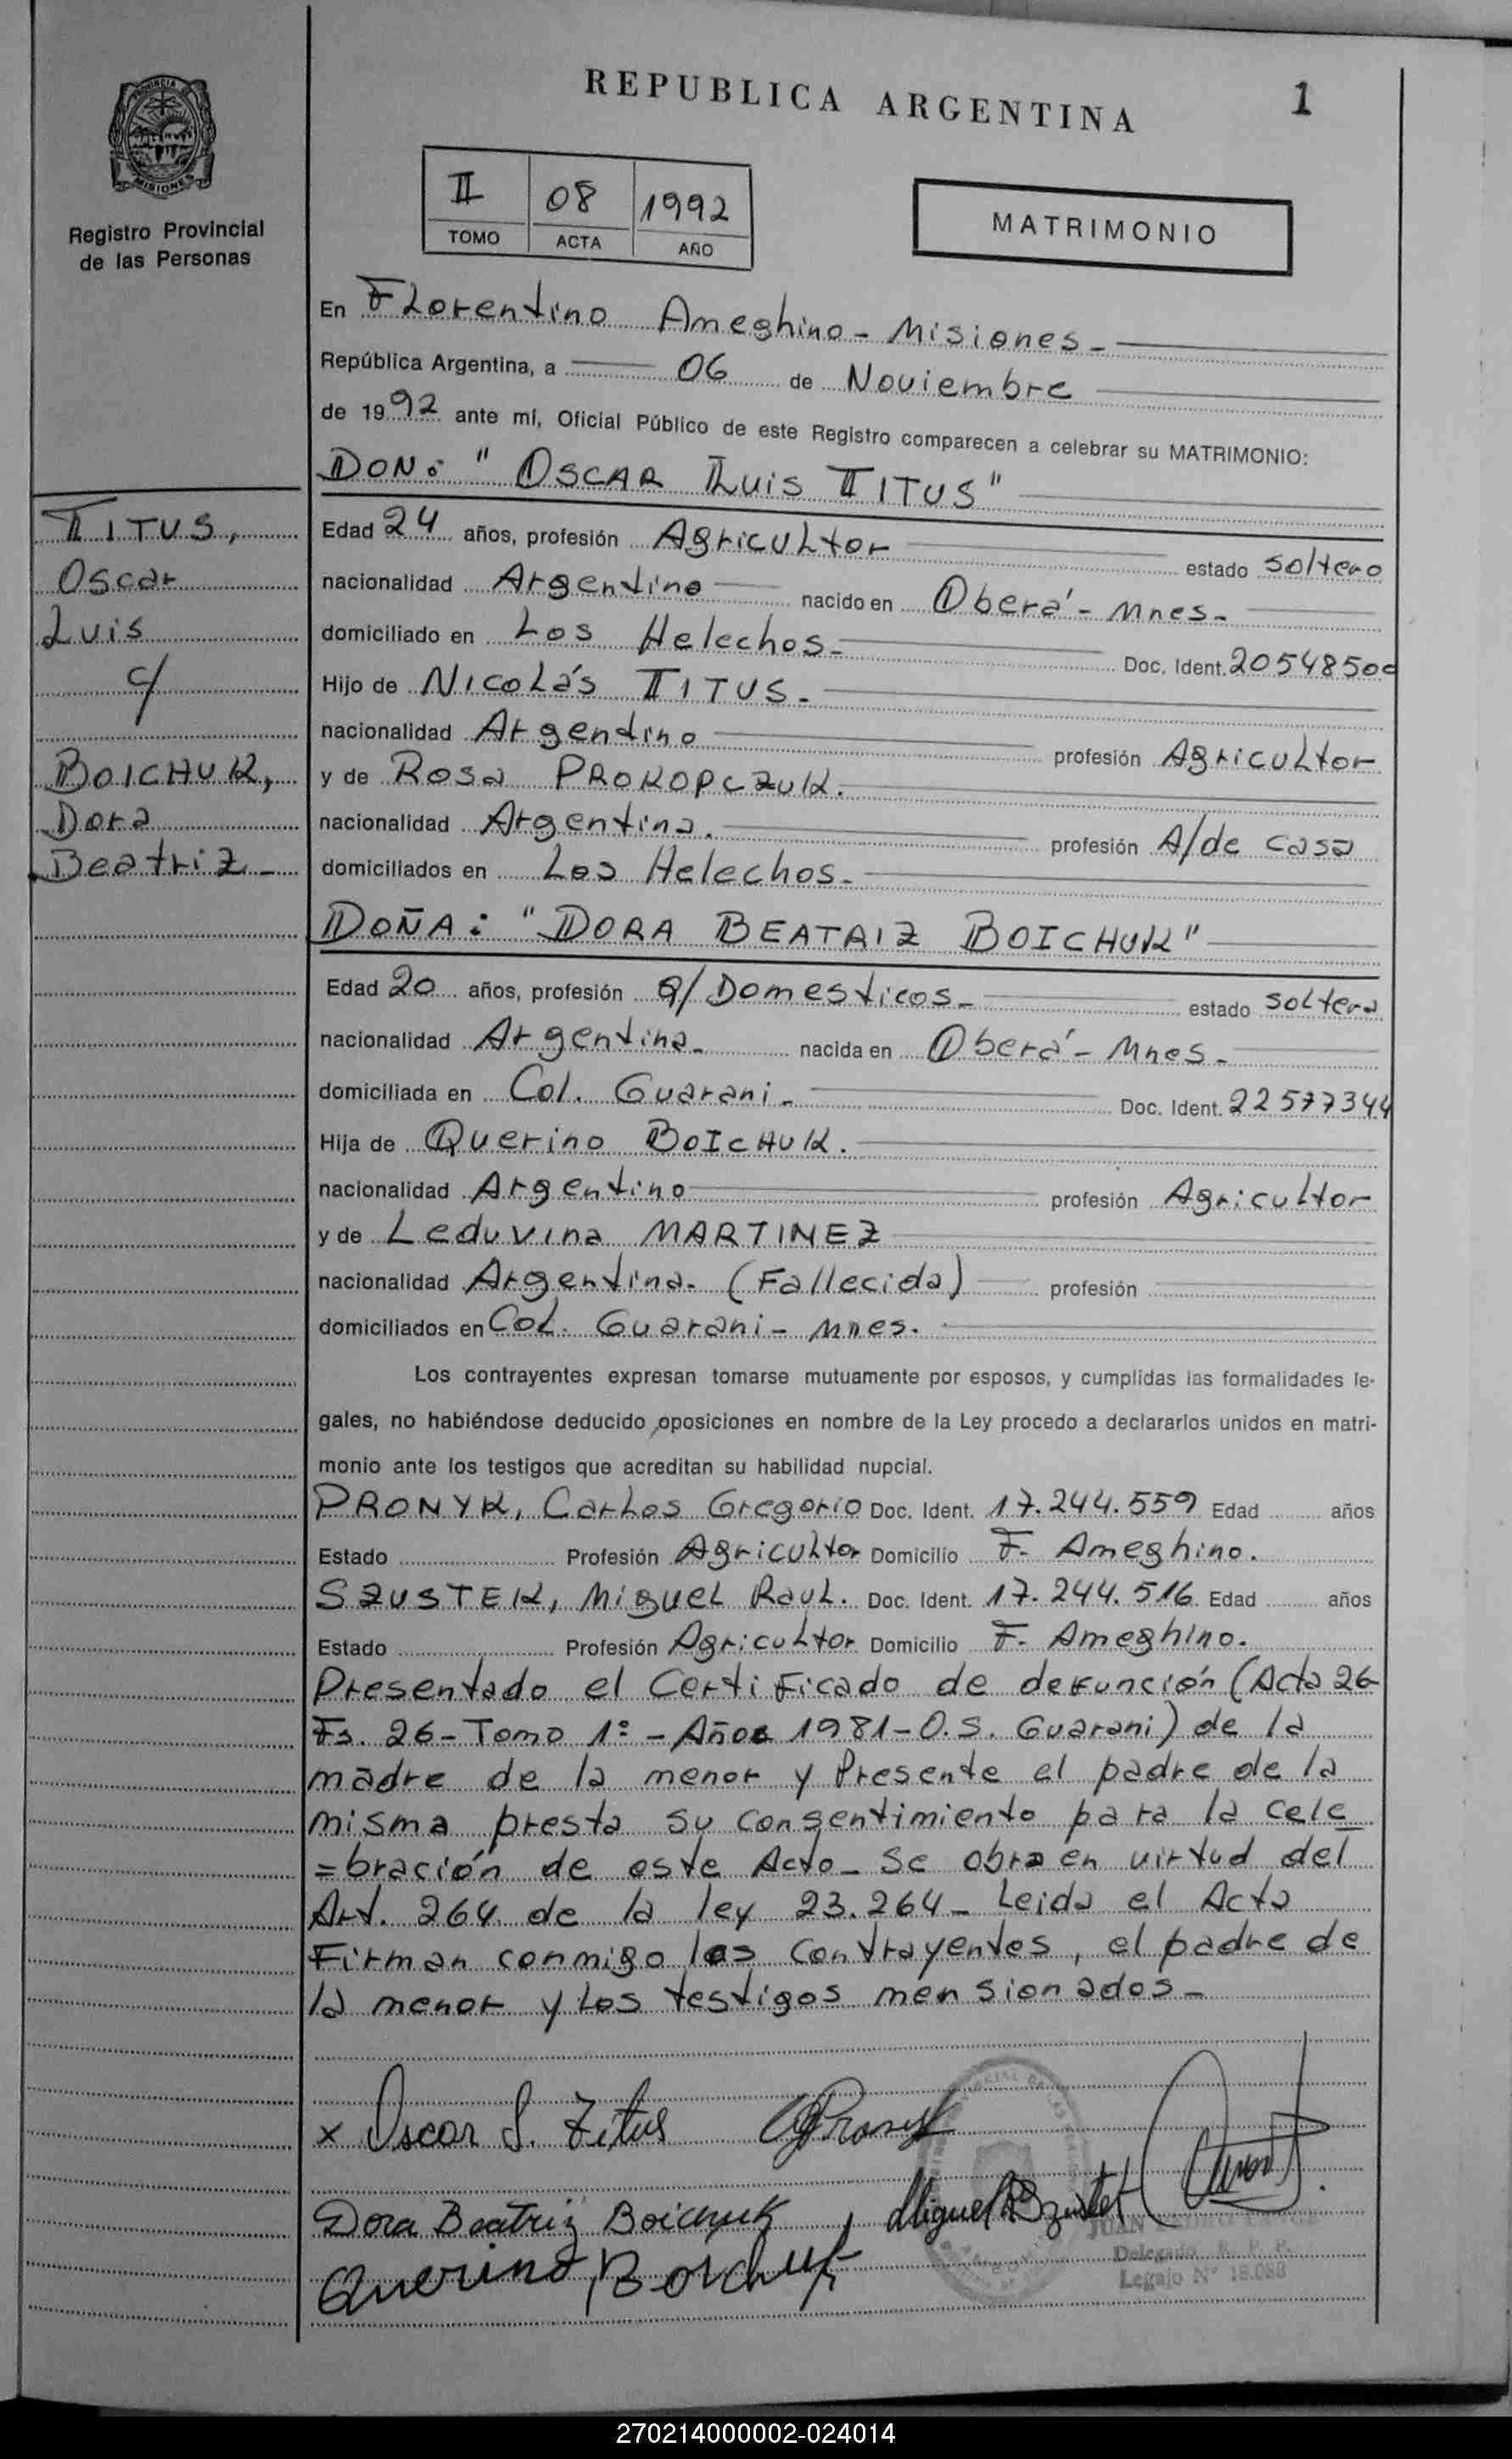 REPUBLICA ARGENTINA
1
PROVINCIA DE MISIONES
Registro Provincial
de las Personas
II 08 1992
TOMO ACTA AÑO
MATRIMONIO
En Florentino Ameghino - Misiones -
República Argentina, a 06 de Noviembre
de 1992 ante mí, Oficial Público de este Registro comparecen a celebrar su MATRIMONIO:
DON: "OSCAR LUIS TITUS"
TITUS,
Oscar
Luis
c/
BOICHUK,
Dora
Beatriz -
Edad 24 años, profesión Agricultor estado soltero
nacionalidad Argentino nacido en Oberá - Mnes -
domiciliado en Los Helechos - Doc. Ident. 20548500
Hijo de Nicolás TITUS -
nacionalidad Argentino profesión Agricultor
y de Rosa PROKOPCZUK.
nacionalidad Argentina. profesión A/de casa
domiciliados en Los Helechos -
DOÑA: "DORA BEATRIZ BOICHUK"
Edad 20 años, profesión Q/Domesticos - estado soltera
nacionalidad Argentina - nacida en Oberá - Mnes -
domiciliada en Col. Guarani - Doc. Ident. 22577344
Hija de Querino BOICHUK.
nacionalidad Argentino profesión Agricultor
y de Leduvina MARTINEZ
nacionalidad Argentina. (Fallecida) profesión
domiciliados en Col. Guarani - Mnes.
Los contrayentes expresan tomarse mutuamente por esposos, y cumplidas las formalidades le-
gales, no habiéndose deducido oposiciones en nombre de la Ley procedo a declararlos unidos en matri-
monio ante los testigos que acreditan su habilidad nupcial.
PRONYK, Carlos Gregorio Doc. Ident. 17.244.559 Edad años
Estado Profesión Agricultor Domicilio F. Ameghino.
SZUSTER, Miguel Raul. Doc. Ident. 17.244.516 Edad años
Estado Profesión Agricultor Domicilio F. Ameghino.
Presentado el Certificado de defunción (Acta 26-
Fs. 26 - Tomo 1º - Año 1981 - O.S. Guarani) de la
madre de la menor y Presente el padre de la
misma presta su consentimiento para la cele
=bración de este Acto - Se obra en virtud del
Art. 264 de la ley 23.264 - Leida el Acta
Firman conmigo los contrayentes, el padre de
la menor y los testigos mensionados -
x Oscar L. Titus
Dora Beatriz Boichuk
Querino Boichuk
Delegado R. P. P.
Legajo Nº 18.088
270214000002-024014